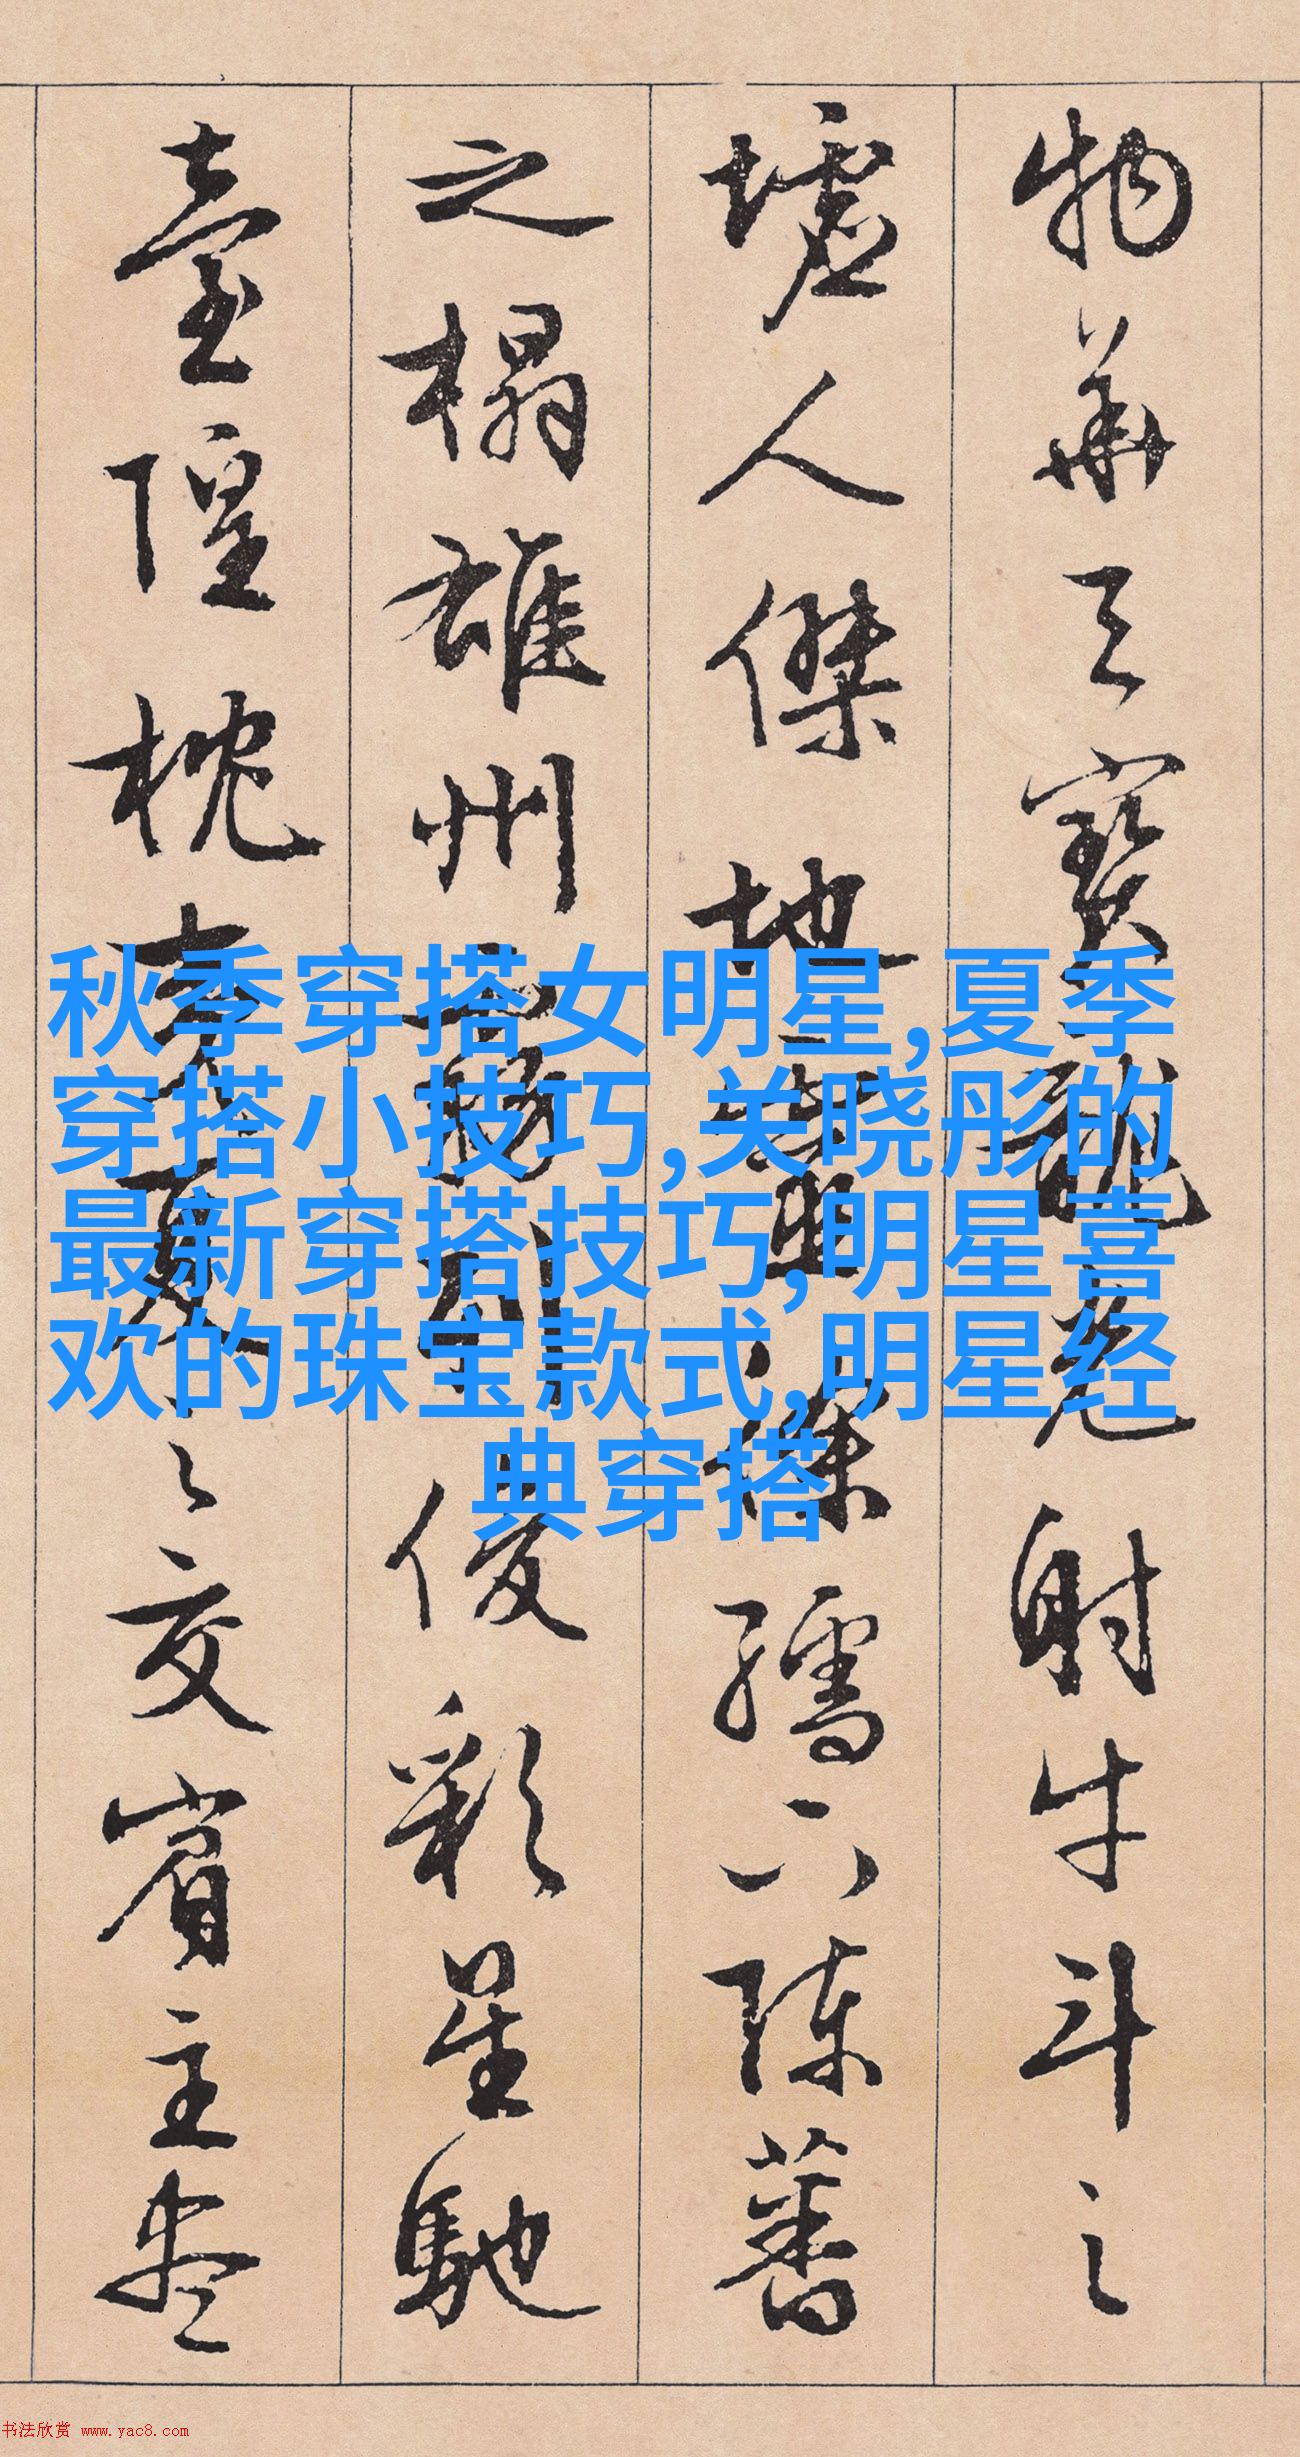 物華天寶龍光射牛斗之
墟人傑地靈徐孺下陳蕃
之榻雄州霧列俊彩星馳
臺隍枕夷夏之交賓主盡
秋季穿搭女明星,夏季
穿搭小技巧,关晓彤的
最新穿搭技巧,明星喜
欢的珠宝款式,明星经
典穿搭
书法欣赏 www.yac8.com